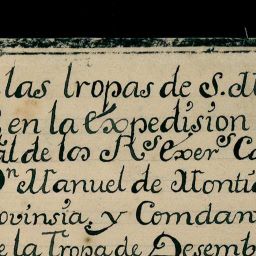 las tropas de S. M
en la Expedision
al de los R.s Exer.s Ca
Dn Manuel de Monti
ovinsia, y Comdan
e la Tropa de Desemb